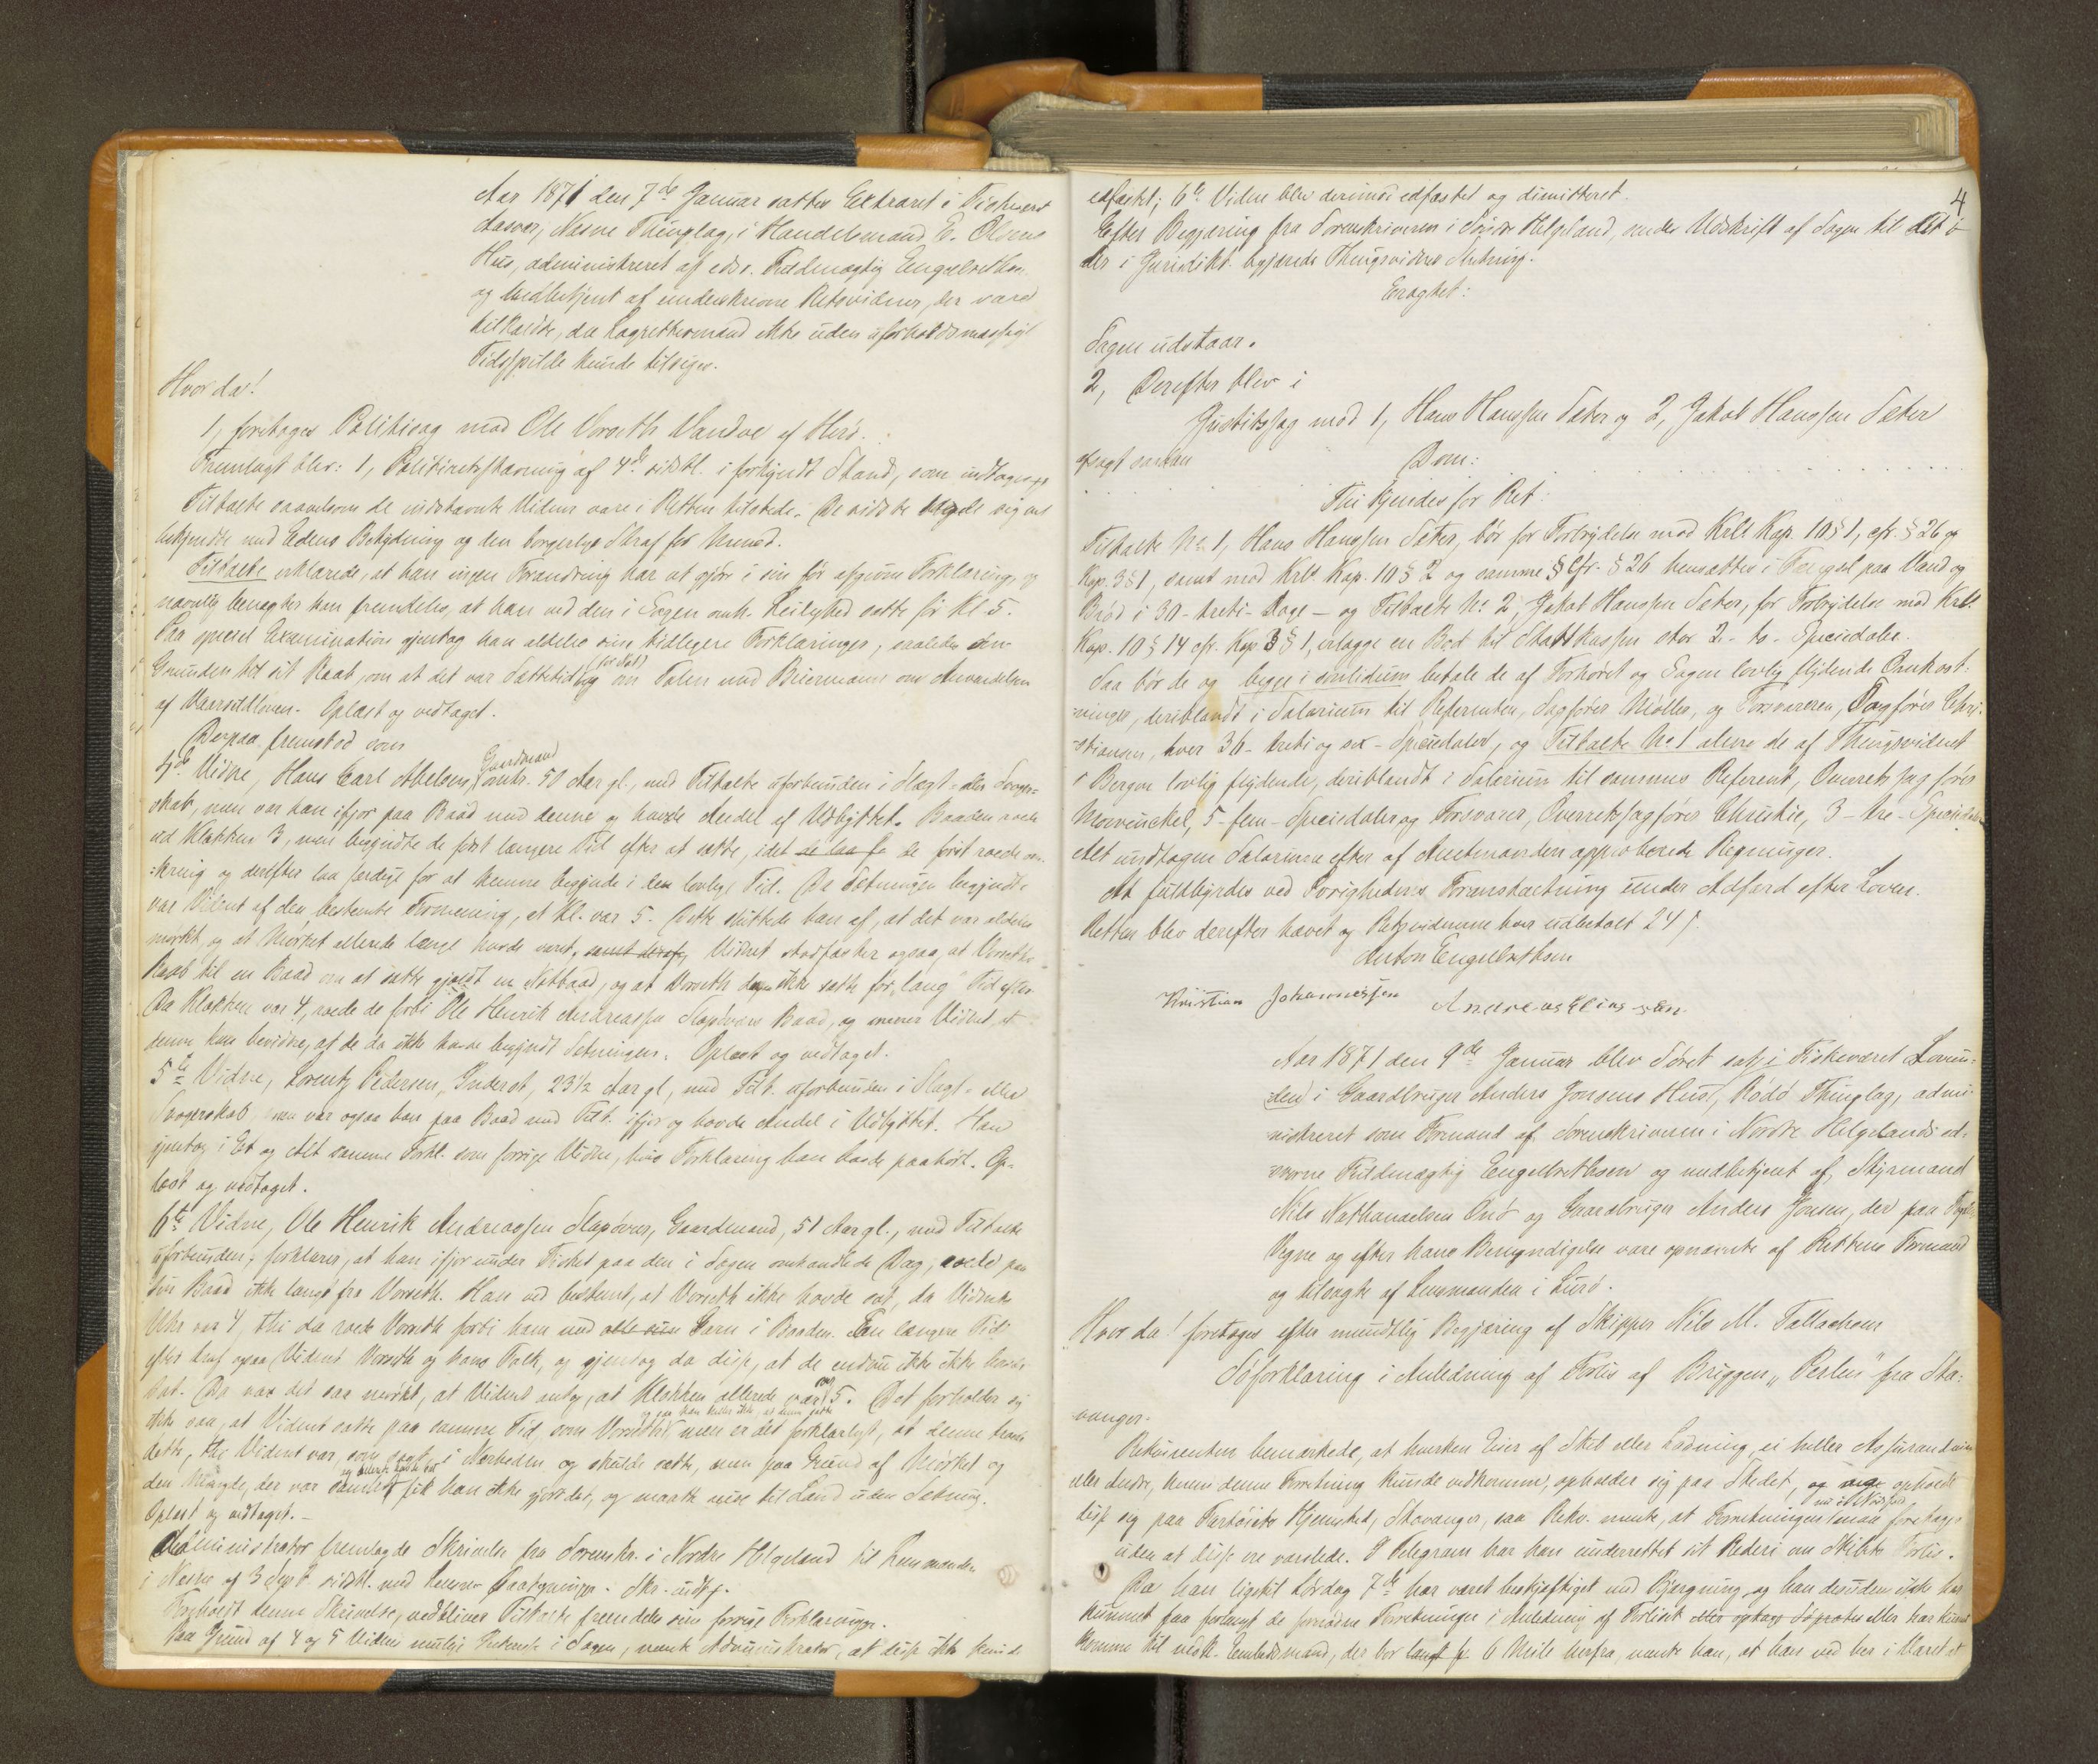 Aar 1871 den 7de Januar sattes Extraret i Fiskeværet
Aasvær, Næsne Thinglag, i Handelsmand E. Olsens
Hus, administreret af edsv. Fuldmægtig Engelbrethsen
og medbetjent af underskrevne Retsvidner, der vare
tilkaldte, da Lagrettesmænd ikke uden uforholdsmæssigt
Tidsspilde kunde tilsiges.
Hvor da!
1, foretoges Politisag mod Ole Vorseth Vandve af Herø.
Fremlagt blev: 1, Politiretsstævning af 4de sidstl. i forkyndt Stand, som indtages
Tiltalte saavelsom de indstævnte Vidner vare i Retten tilstede. De sidste sig vel
bekjendte med Edens Betydning og den borgerlige Straf for Meened.
Tiltalte erklærede, at han ingen Forandring har at gjøre i sin før afgivne Forklaring, og
navnlig benægter han fremdeles, at han ved den i Sagen omh. Leilighed satte før Kl. 5.
Paa speciel Examination gjentog han aldeles sine tidligere Forklaringer, saaledes om
Grunden til sit Raab, om at det var Sættetid og om Talen med Buermann om Anvendelsen
af Vaarsildloven. Oplæst og vedtaget.
Derpaa fremstod som
4de Vidne, Hans Carl Abelsen, Gaardmand omtr. 50 Aar gl., med Tiltalte uforbunden i Slægt- eller Svoger-
skab, men var han ifjor paa Baad med denne og havde Andel af Udbyttet. Baaden roede
ud Klokken 3, men begyndte de først længere Tid efter at sætte, idet de laa fo de først roede om-
kring og derefter laa færdige for at kunne begynde i den lovlige Tid. Da Sætningen begyndte
var Vidnet af den bestemte Formening, at Kl. var 5. Dette sluttede han af, at det var aldeles
mørkt, og at Mørket allerede længe havde været, samt deraf, Vidnet stadfæster ogsaa, at Vorseths
Raab til en Baad om at sætte gjældt en Notbaad, og at Vorseth ikke satte før „lang" Tid efter.
Da Klokken var 4, roede de forbi Ole Henrik Andreassen Slapøvær Baad, og mener Vidnet, at
denne kan bevidne, at de da ikke havde begyndt Sætningen. Oplæst og vedtaget.
5te Vidne, Lorentz Pedersen, Inderst, 23 1/2 Aar gl., med Tilt. uforbunden i Slægt- eller
Svogerskab, men var ogsaa han paa Baad med Tilt. ifjor og havde Andel i Udbyttet. Han
gjentog i Et og Alt samme Forkl. som forrige Vidne, hvis Forklaring han havde paahørt. Op-
læst og vedtaget.
6te Vidne, Ole Henrik Andreassen Slapøvær, Gaardmand, 51 Aar gl., med Tiltalte
uforbunden, forklarer, at han ifjor under Fisket paa den i Sagen omhandlede Dag, roede paa
sin Baad ikke langt fra Vorseth. Han ved bestemt, at Vorseth ikke havde sat, da Vidnets
Uhr var 4, thi da roede Vorseth forbi ham med alle sine Garn i Baaden. En længere Tid
efter traf ogsaa Vidnet Vorseth og hans Folk, og gjentog da disse, at de endnu ikke havde
sat. Da var det saa mørkt, at Vidnet antog, at Klokken allerede var 5. Det forholder sig
ikke saa, at Vidnet satte paa samme Tid som Vorseth og saa han heller ikke, at denne satte men er det forklarligt, at denne troede
dette, thi Vidnet var, som sagt, i Nærheden og skulde sætte, men paa Grund af Mørket og
den Mængde, der var samlet, fik han ikke gjort det, og maatte reise til Land uden Sætning.
Oplæst og vedtaget.
Administrator fremlagde Skrivelse fra Sorenskr. i Nordre Helgeland til Lensmanden
i Næsne af 3 Septb. sidstl. med Lensm. Paategninger. Skr. indtg.
Foreholdt denne Skrivelse, vedbliver Tiltalte fremdeles sine forrige Forklaringer.
Paa Grund af 4 og 5 Vidnes mulige Interesse i Sagen, mente Administrator, at disse ikke kunde
4
edfæstet; 6te Vidne blev derimod edfæstet og dimitteret.
Efter Begjæring fra Sorenskriveren i Søndre Helgeland, sendes Udskrift af Sagen til det
der i Jurisdikt. begjærede Thingsvidnes Optagning.
Eragtet:
Sagen udstaar.
2, Derefter blev i
Justitssag mod 1, Hans Hanssen Sæter og 2, Jakob Hanssen Sæter
afsagt saadan
Dom:
Thi kjendes for Ret:
Tiltalte No 1, Hans Hanssen Sæter, bør for Forbrydelse mod Krl. Kap. 10 § 1, cfr. § 26 og
Kap. 3 § 1, samt mod Krl. Kap. 10 § 2 og samme § Cfr. § 26 hensættes i Fængsel paa Vand og
Brød i 30 - treti - Dage - og Tiltalte No 2, Jakob Hanssen Sæter, for Forbrydelse mod Krl.
Kap. 10 § 14 cfr. Kap 3 § 1, erlægge en Bod til Statskassen stor 2 - to - Speciedaler.
Saa bør de og begge in solidum betale de af Forhøret og Sagen lovlig flydende Omkost-
ninger, deriblandt i Salarium til Referenten, Sagfører Møller, og Forsvareren, Sagfører Chri-
stiansen, hver 36 - treti og sex - Speciedaler, og Tiltalte No 1 alene de af Thingsvidnet
i Bergen lovlig flydende, deriblandt i Salarium til sammes Referent, Overretssagfører
Mowinckel, 5 - fem - Speciedaler og Forsvarer, Overretssagfører Christie, 3 - tre - Speciedaler
Alt undtagen Salarierne efter af Amtmanden approberede Regninger.
At fuldbyrdes ved Øvrighedens Foranstaltning under Adfærd efter Loven.
Retten blev derefter hævet og Retsvidnerne hver udbetalt 24 s.
Anton Engelbrethsen
Kristian Johannessen Andreas Eliassen
Aar 1871 den 9de Januar blev Søret sat i Fiskeværet Lovun-
den i Gaardbruger Anders Jonsens Hus, Rødø Thinglag, admi-
nistreret som Formand af Sorenskriveren i Nordre Helgelands ed-
svorne Fuldmægtig Engelbrethsen og medbetjent af Styrmand
Nils Nathanaelsen Onø og Gaardbruger Anders Jonsen, der paa Fogdens
Vegne og efter hans Bemyndigelse vare opnævnte af Rettens Formand
og tilsagte af Lensmanden i Lurø.
Hvor da! foretoges efter mundtlig Begjæring af Skipper Nils M. Tallaksen
Søforklaring i Anledning af Forlis af Briggen „Perlen" fra Sta-
vanger.
Rekvirenten bemærkede, at hverken Eier af Skib eller Ladning, ei heller Assurandeur
eller Andre, hvem denne Forretning kunde vedkomme, opholder sig paa Stedet, og opholdt
disse sig paa Fartøiets Hjemsted, Stavanger, saa Rekv. mente, at Forretningen maa foretages
uden at disse ere varslede. I Telegram har han underrettet sit Rederi om Skibets Forlis.
Da han ligetil Lørdag 7de har været beskjæftiget med Bjergning og han desuden ikke har
kunnet faa forlangt de fornødne Forretninger i Anledning af Forliset eller optage Søprotes eller har kunnet
komme til vedk. Embedsmand, der bor langt fr 6 Mile herfra, mente han, at han ved her i Været at